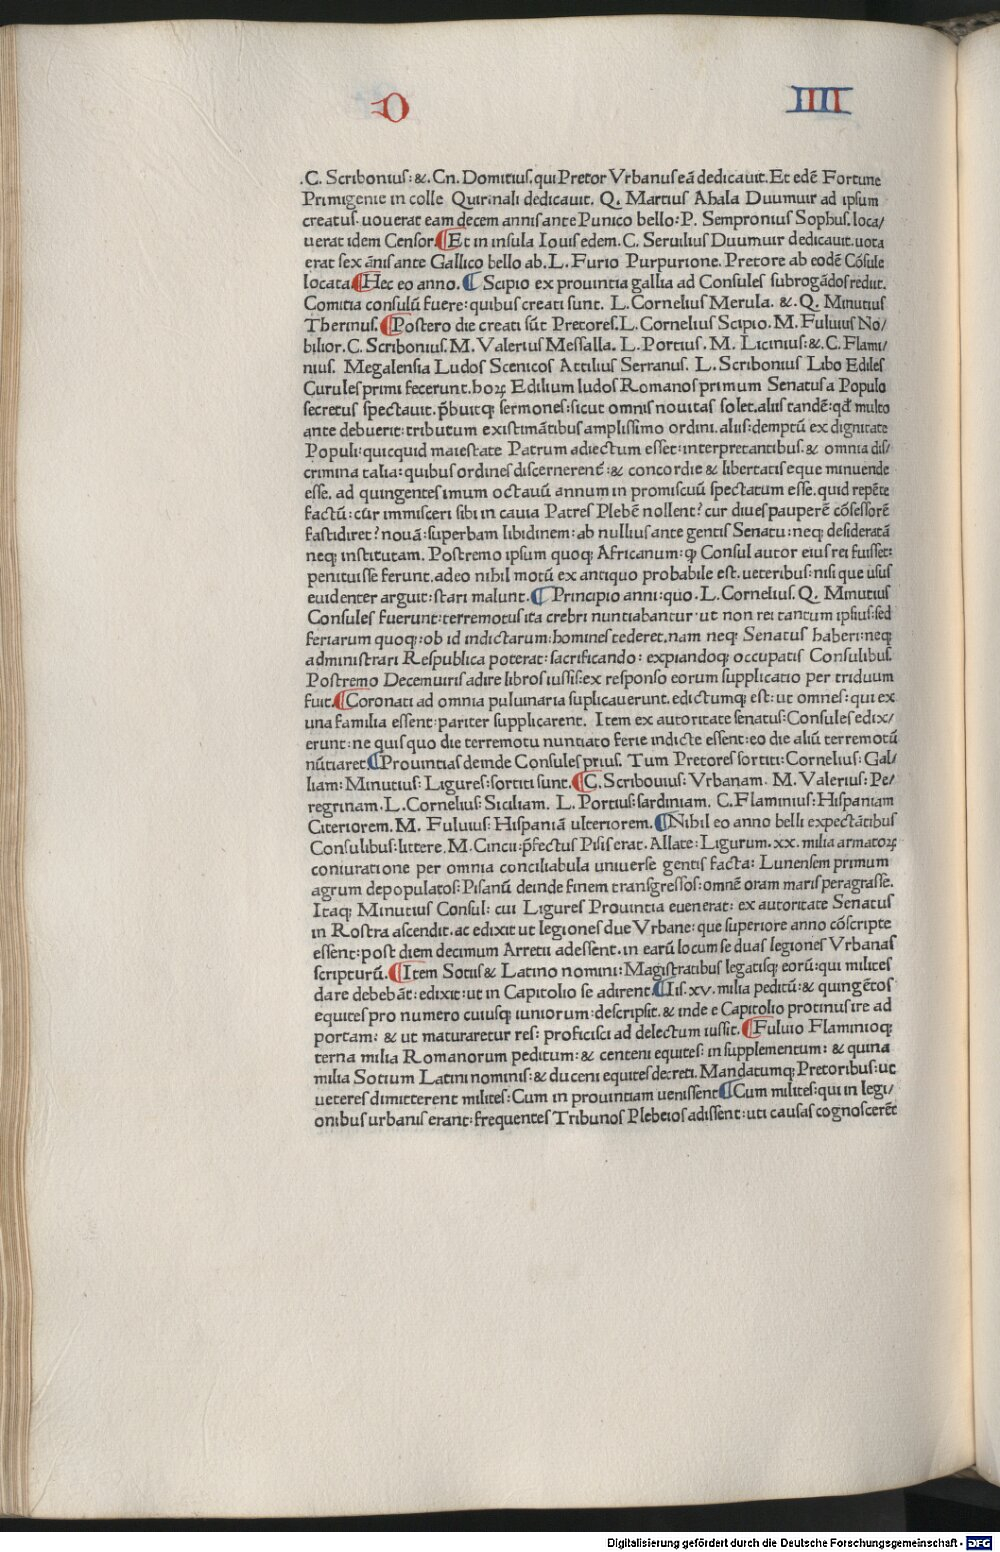 D IIII
.C. Scribonius: &. Cn. Domitius. qui Pretor Vrbanus eã dedicauit. Et edẽ Fortune
Primigenie in colle Quirinali dedicauit. Q. Martius Ahala Duumuir ad ipsum
creatus. uouerat eam decem annis ante Punico bello: P. Sempronius Sophus. loca/
uerat idem Censor. ¶Et in insula Iouis edem. C. Seruilius Duumuir dedicauit. uota
erat sex ãnis ante Gallico bello ab. L. Furio Purpurione. Pretore ab eodẽ Cõsule
locata. ¶Hec eo anno. ¶ Scipio ex prouintia gallia ad Consules subrogãdos rediit.
Comitia consulũ fuere: quibus creati sunt. L. Cornelius Merula. &. Q. Minutius
Thermus. ¶Postero die creati sũt Pretores. L. Cornelius Scipio. M. Fuluius No/
bilior. C. Scribonius. M. Valerius Messalla. L. Portius. M. Licinius: &. C. Flami/
nius. Megalensia Ludos Scenicos Attilius Serranus. L. Scribonius Libo Ediles
Curules primi fecerunt. hoꝝ Edilium ludos Romanos primum Senatus a Populo
secretus spectauit. p̃buitq; sermones: sicut omnis nouitas solet. aliis tandẽ: qđ multo
ante debuerit: tributum existimãtibus amplissimo ordini. aliis: demptũ ex dignitate
Populi: quicquid maiestate Patrum adiectum esset: interpretantibus. & omnia dis/
crimina talia: quibus ordines discernerent̃: & concordie & libertatis eque minuende
esse. ad quingentesimum octauũ annum in promiscuũ spectatum esse. quid repẽte
factũ: cur immisceri sibi in cauia Patres Plebẽ nollent? cur diues pauperẽ cõsessorẽ
fastidiret? nouã: superbam libidinem: ab nullius ante gentis Senatu: neq; desideratã
neq; institutam. Postremo ipsum quoq; Africanum: ꝙ Consul autor eius rei fuisset:
penituisse ferunt. adeo nihil motũ ex antiquo probabile est. ueteribus: nisi que usus
euidenter arguit: stari malunt. ¶ Principio anni: quo. L. Cornelius. Q. Minutius
Consules fuerunt: terremotus ita crebri nuntiabantur: ut non rei tantum ipsius: sed
feriarum quoq; ob id indictarum: homines tederet. nam neq; Senatus haberi: neq;
administrari Respublica poterat: sacrificando: expiandoq; occupatis Consulibus.
Postremo Decemuiris adire libros iussis: ex responso eorum supplicatio per triduum
fuit. ¶Coronati ad omnia puluinaria suplicauerunt. edictumq; est: ut omnes: qui ex
una familia essent: pariter supplicarent. Item ex autoritate senatus: Consules edix/
erunt: ne quis quo die terremotu nuntiato ferie indicte essent: eo die aliũ terremotũ
nũtiaret. ¶Prouintias deinde Consules prius. Tum Pretores sortiti: Cornelius: Gal/
liam: Minutius: Ligures: sortiti sunt. ¶C. Scribouius: Vrbanam. M. Valerius: Pe/
regrinam. L. Cornelius: Siciliam. L. Portius: sardiniam. C. Flaminius: Hispaniam
Citeriorem. M. Fuluius: Hispaniã ulteriorem. ¶Nihil eo anno belli expectãtibus
Consulibus: littere. M. Cincii: p̃fectus Pisis erat. Allate: Ligurum. xx. milia armatoꝝ
coniuratione per omnia conciliabula uniuerse gentis facta: Lunensem primum
agrum depopulatos: Pisanũ deinde finem transgressos: omnẽ oram maris peragrasse.
Itaq; Minutius Consul: cui Ligures Prouintia euenerat: ex autoritate Senatus
in Rostra ascendit. ac edixit ut legiones due Vrbane: que superiore anno cõscripte
essent: post diem decimum Arretii adessent. in earũ locum se duas legiones Vrbanas
scripturũ. ¶Item Sotiis & Latino nomini: Magistratibus legatisq; eorũ: qui milites
dare debebãt: edixit: ut in Capitolio se adirent. ¶Iis. xv. milia peditũ: & quingẽtos
equites pro numero cuiusq; iuniorum: descripsit. & inde e Capitolio protinus ire ad
portam: & ut maturaretur res: proficisci ad delectum iussit. ¶Fuluio Flaminioq;
terna milia Romanorum peditum: & centeni equites: in supplementum: & quina
milia Sotium Latini nominis: & duceni equites decreti. Mandatumq; Pretoribus: ut
ueteres dimitterent milites: Cum in prouintiam uenissent. ¶Cum milites: qui in legi/
onibus urbanis erant: frequentes Tribunos Plebeios adissent: uti causas cognoscerẽt
Digitalisierung gefördert durch die Deutsche Forschungsgemeinschaft - DFG